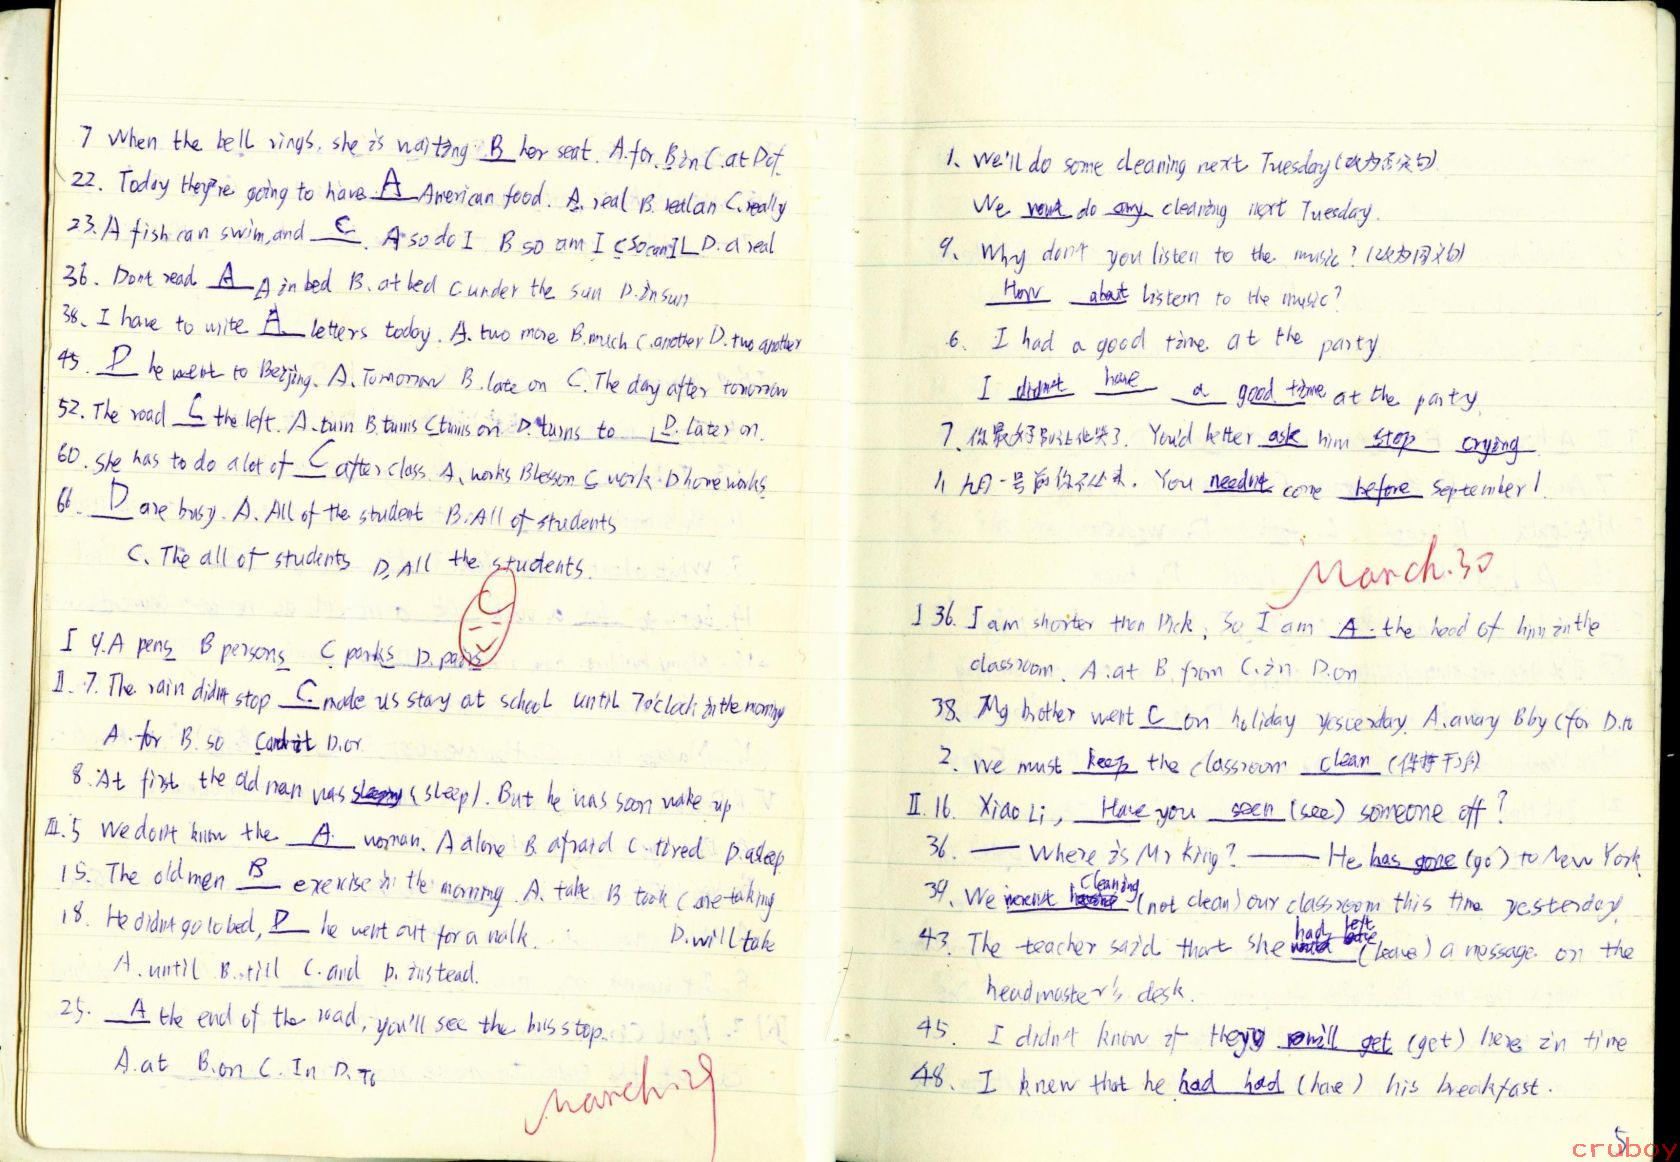 7 When the bell rings, she is waiting B her seat. A.for. B in C.at D of.
22. Today they're going to have A American food. A. real B. realan C. really
23. A fish can swim, and C. A so do I B so am I C so can I D. a real
36. Dont read A A in bed B. at bed C under the sun D. in sun
38. I have to write A letters today. A. two more B. much C. another D. two another
45. D he went to Beijing. A. Tomorrow B. late on C. The day after tomorrow
52. The road C the left. A. turn B. turns C turns on D. turns to D. later on.
60. she has to do a lot of C after class. A. works B lesson C work D homeworks
66. D are busy. A. All of the student B. All of students
C. The all of students D. All the students.
I 4. A pens B persons C parks D. pairs
II. 7. The rain didn't stop C. made us stay at school until 7 o'clock in the morning
A. for B. so C and it D. or
8. At first the old man was sleeping (sleep). But he was soon wake up
III. 5 We don't know the A woman. A alone B. afraid C. tired D. asleep
15. The old men B exercise in the morning. A. take B took C are taking
18. He didn't go to bed, D he went out for a walk. D. will take
A. until B. till C. and D. instead.
25. A the end of the road, you'll see the bus stop.
A. at B. on C. In D. To
March. 29
1. We'll do some cleaning next Tuesday (改为否定句)
We won't do any cleaning next Tuesday.
9. Why don't you listen to the music? (改为同义句)
How about listern to the music?
6. I had a good time at the party
I didn't have a good time at the party.
7. 你最好别让他哭了. You'd better ask him stop crying
11 九月一号前你不必来. You needn't come before September 1.
March. 30
I 36. I am shorter than Dick, So I am A the head of him in the
classroom. A. at B. from C. in D. on
38. My brother went C on holiday yesterday. A. away B by C for D. to
2. We must keep the classroom clean (保持干净)
II. 16. Xiao Li, Have you seen (see) someone off?
36. — Where is Mr King? — He has gone (go) to New York.
39. We weren't cleaning (not clean) our classroom this time yesterday.
43. The teacher said that she had left (leave) a message on the
headmaster's desk.
45. I didn't know if they will get (get) here in time
48. I knew that he had had (have) his breakfast.
5
cruboy